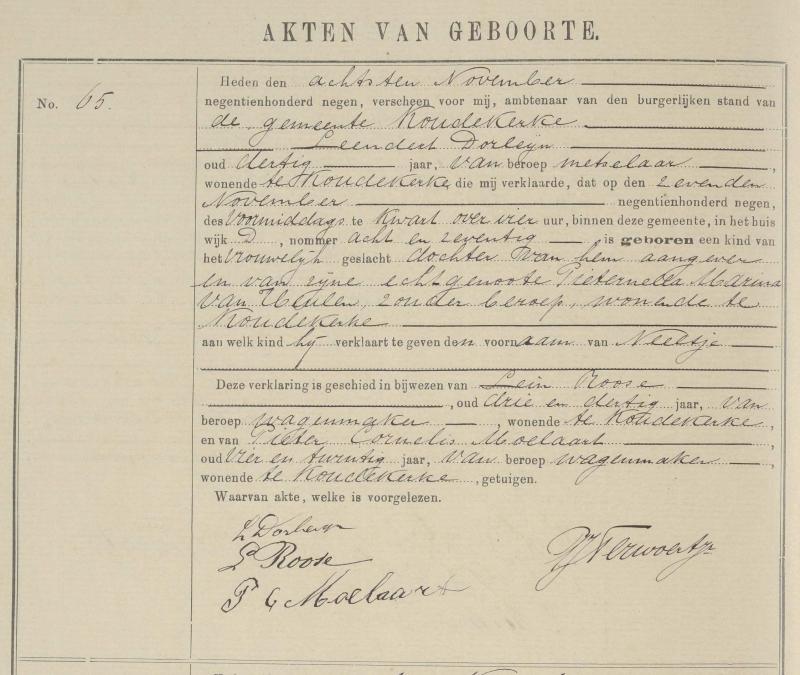 AKTEN VAN GEBOORTE.
No. 65.
Heden den achtsten November
negentienhonderd negen, verscheen voor mij, ambtenaar van den burgerlijken stand van
de gemeente Koudekerke
Leendert Dorleijn
oud dertig jaar, van beroep metselaar,
wonende te Koudekerke, die mij verklaarde, dat op den zevenden
November negentienhonderd negen,
des Voormiddags te kwart over vier uur, binnen deze gemeente, in het huis
wijk D, nommer acht en zeventig is geboren een kind van
het vrouwelijk geslacht dochter van hem aangever
en van zijne echtgenoote Pieternella Marina
van Heulen, zonder beroep, wonende te
Koudekerke
aan welk kind hij verklaart te geven den voornaam van Neeltje
Deze verklaring is geschied in bijwezen van Lein Roose
, oud drie en dertig jaar, van
beroep wagenmaker, wonende te Koudekerke,
en van Pieter Cornelis Moelaart
oud vier en twintig jaar, van beroep wagenmaker,
wonende te Koudekerke, getuigen.
Waarvan akte, welke is voorgelezen.
L Dorleijn
L Roose
P C Moelaart